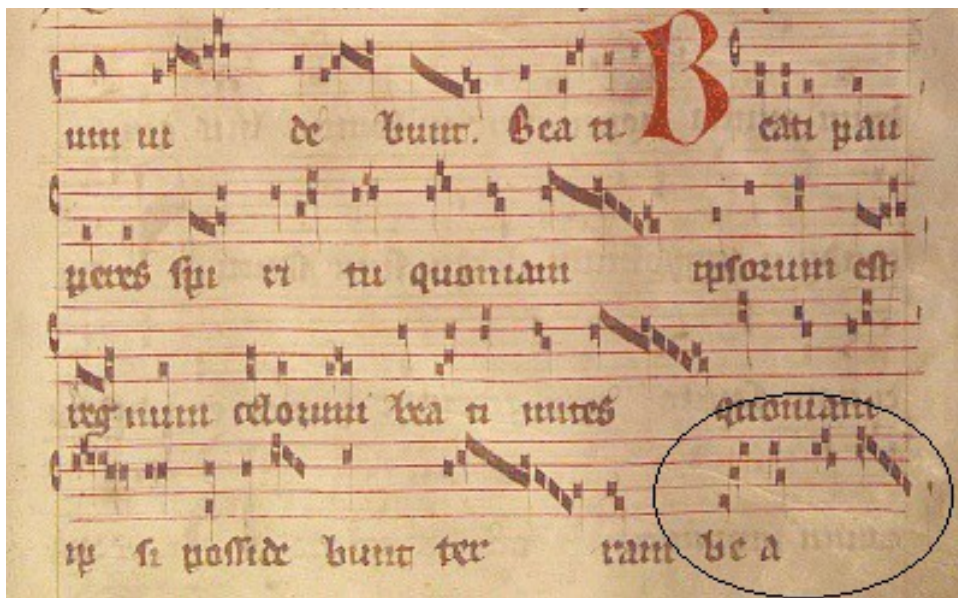 um ui de bunt. Bea ti Beati pau
peres spi ri tu quoniam ipsorum est
regnum celorum bea ti mites quoniam
ip si posside bunt ter ram be a